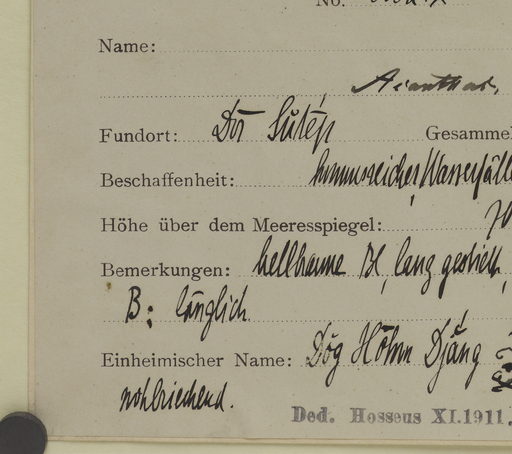 No.
Name:
Acanthac.
Fundort: Doi Sutép Gesammel
Beschaffenheit: humusreicher, Wasserfälle
Höhe über dem Meeresspiegel:
Bemerkungen: hellbraune Bl, lang gestielt,
B: länglich
Einheimischer Name: Dog Hōhm Djáng
wohlriechend.
Ded. Hosseus XI.1911.